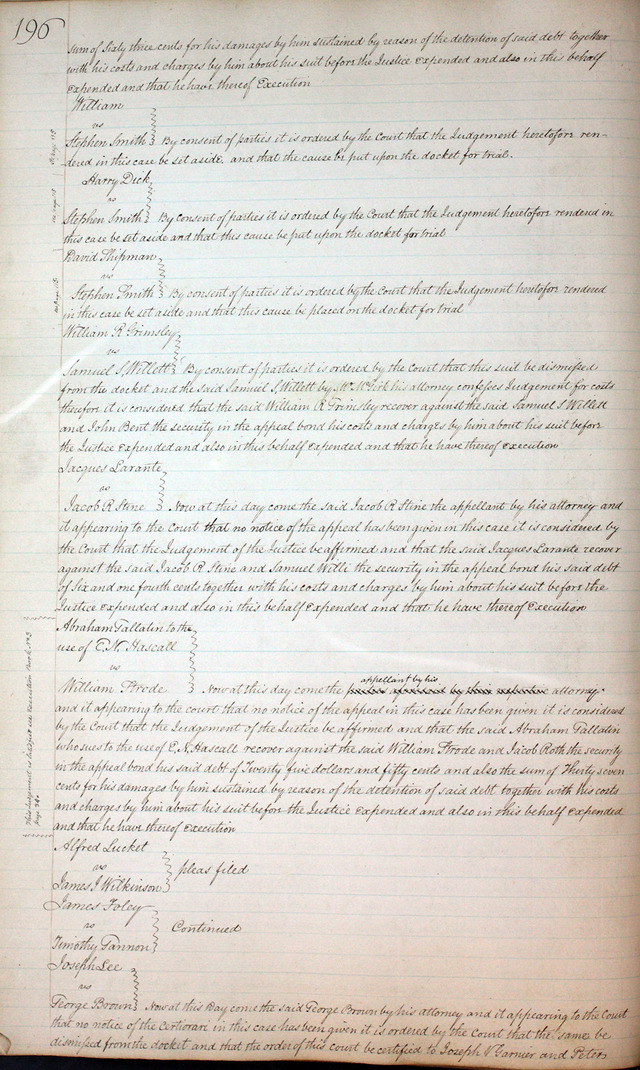 196
sum of Sixty three cents for his damages by him sustained by reason of the detention of said debt together
with his costs and charges by him about his suit before the Justice expended and also in this behalf
expended and that he have thereof Execution
William
vs
Stephen Smith By consent of parties it is ordered by the Court that the Judgement heretofore ren-
dered in this case be set aside, and that the cause be put upon the docket for trial.
Harry Dick
vs
Stephen Smith By consent of parties it is ordered by the Court that the Judgement heretofore rendered in
this case be set aside and that this cause be put upon the docket for trial
David Shipman
vs
Stephen Smith By consent of parties it is ordered by the Court that the Judgement heretofore rendered
in this case be set aside and that this cause be placed on the docket for trial
William R Grimsley
vs
Samuel S, Willett By consent of parties it is ordered by the Court that this suit be dismissed
from the docket and the said Samuel S, Willett by Mr. McGirk his attorney confesses Judgement for costs
therefore it is considered that the said William R Grimsley recover against the said Samuel S Willett
and John Bent the security in the appeal bond his costs and charges by him about his suit before
the Justice Expended and also in this behalf Expended and that he have thereof execution
Jacques Larante
vs
Jacob R Stine Now at this day come the said Jacob R Stine the appellant by his attorney and
it appearing to the Court that no notice of the appeal has been given in this case it is considered by
the Court that the Judgement of the Justice be affirmed and that the said Jacques Larante recover
against the said Jacob R Stine and Samuel Willi the security in the appeal bond his said debt
of Six and one fourth cents together with his costs and charges by him about his suit before the
Justice Expended and also in this behalf Expended and that he have thereof Execution
Abraham Gallatin to the
use of E. N. Hascall
vs
appellant by his
William Strode Now at this day come the attorney
and it appearing to the court that no notice of the appeal in this case has been given it is considered
by the Court that the Judgement of the Justice be affirmed and that the said Abraham Gallatin
who sues to the use of E. N. Hascall recover against the said William Strode and Jacob Roth the security
in the appeal bond his said debt of Twenty five dollars and fifty cents and also the sum of Thirty seven
cents for his damages by him sustained by reason of the detention of said debt together with his costs
and charges by him about his suit before the Justice Expended and also in this behalf expended
and that he have thereof execution
Alfred Lucket
vs pleas filed
James J Wilkinson
James Foley
vs Continued
Timothy Gannon
Joseph Lee
vs
George Brown Now at this Day come the said George Brown by his attorney and it appearing to the Court
that no notice of the Certiorari in this case has been given it is ordered by the Court that the same be
dismissed from the docket and that the order of this court be certified to Joseph V Garnier and Peter